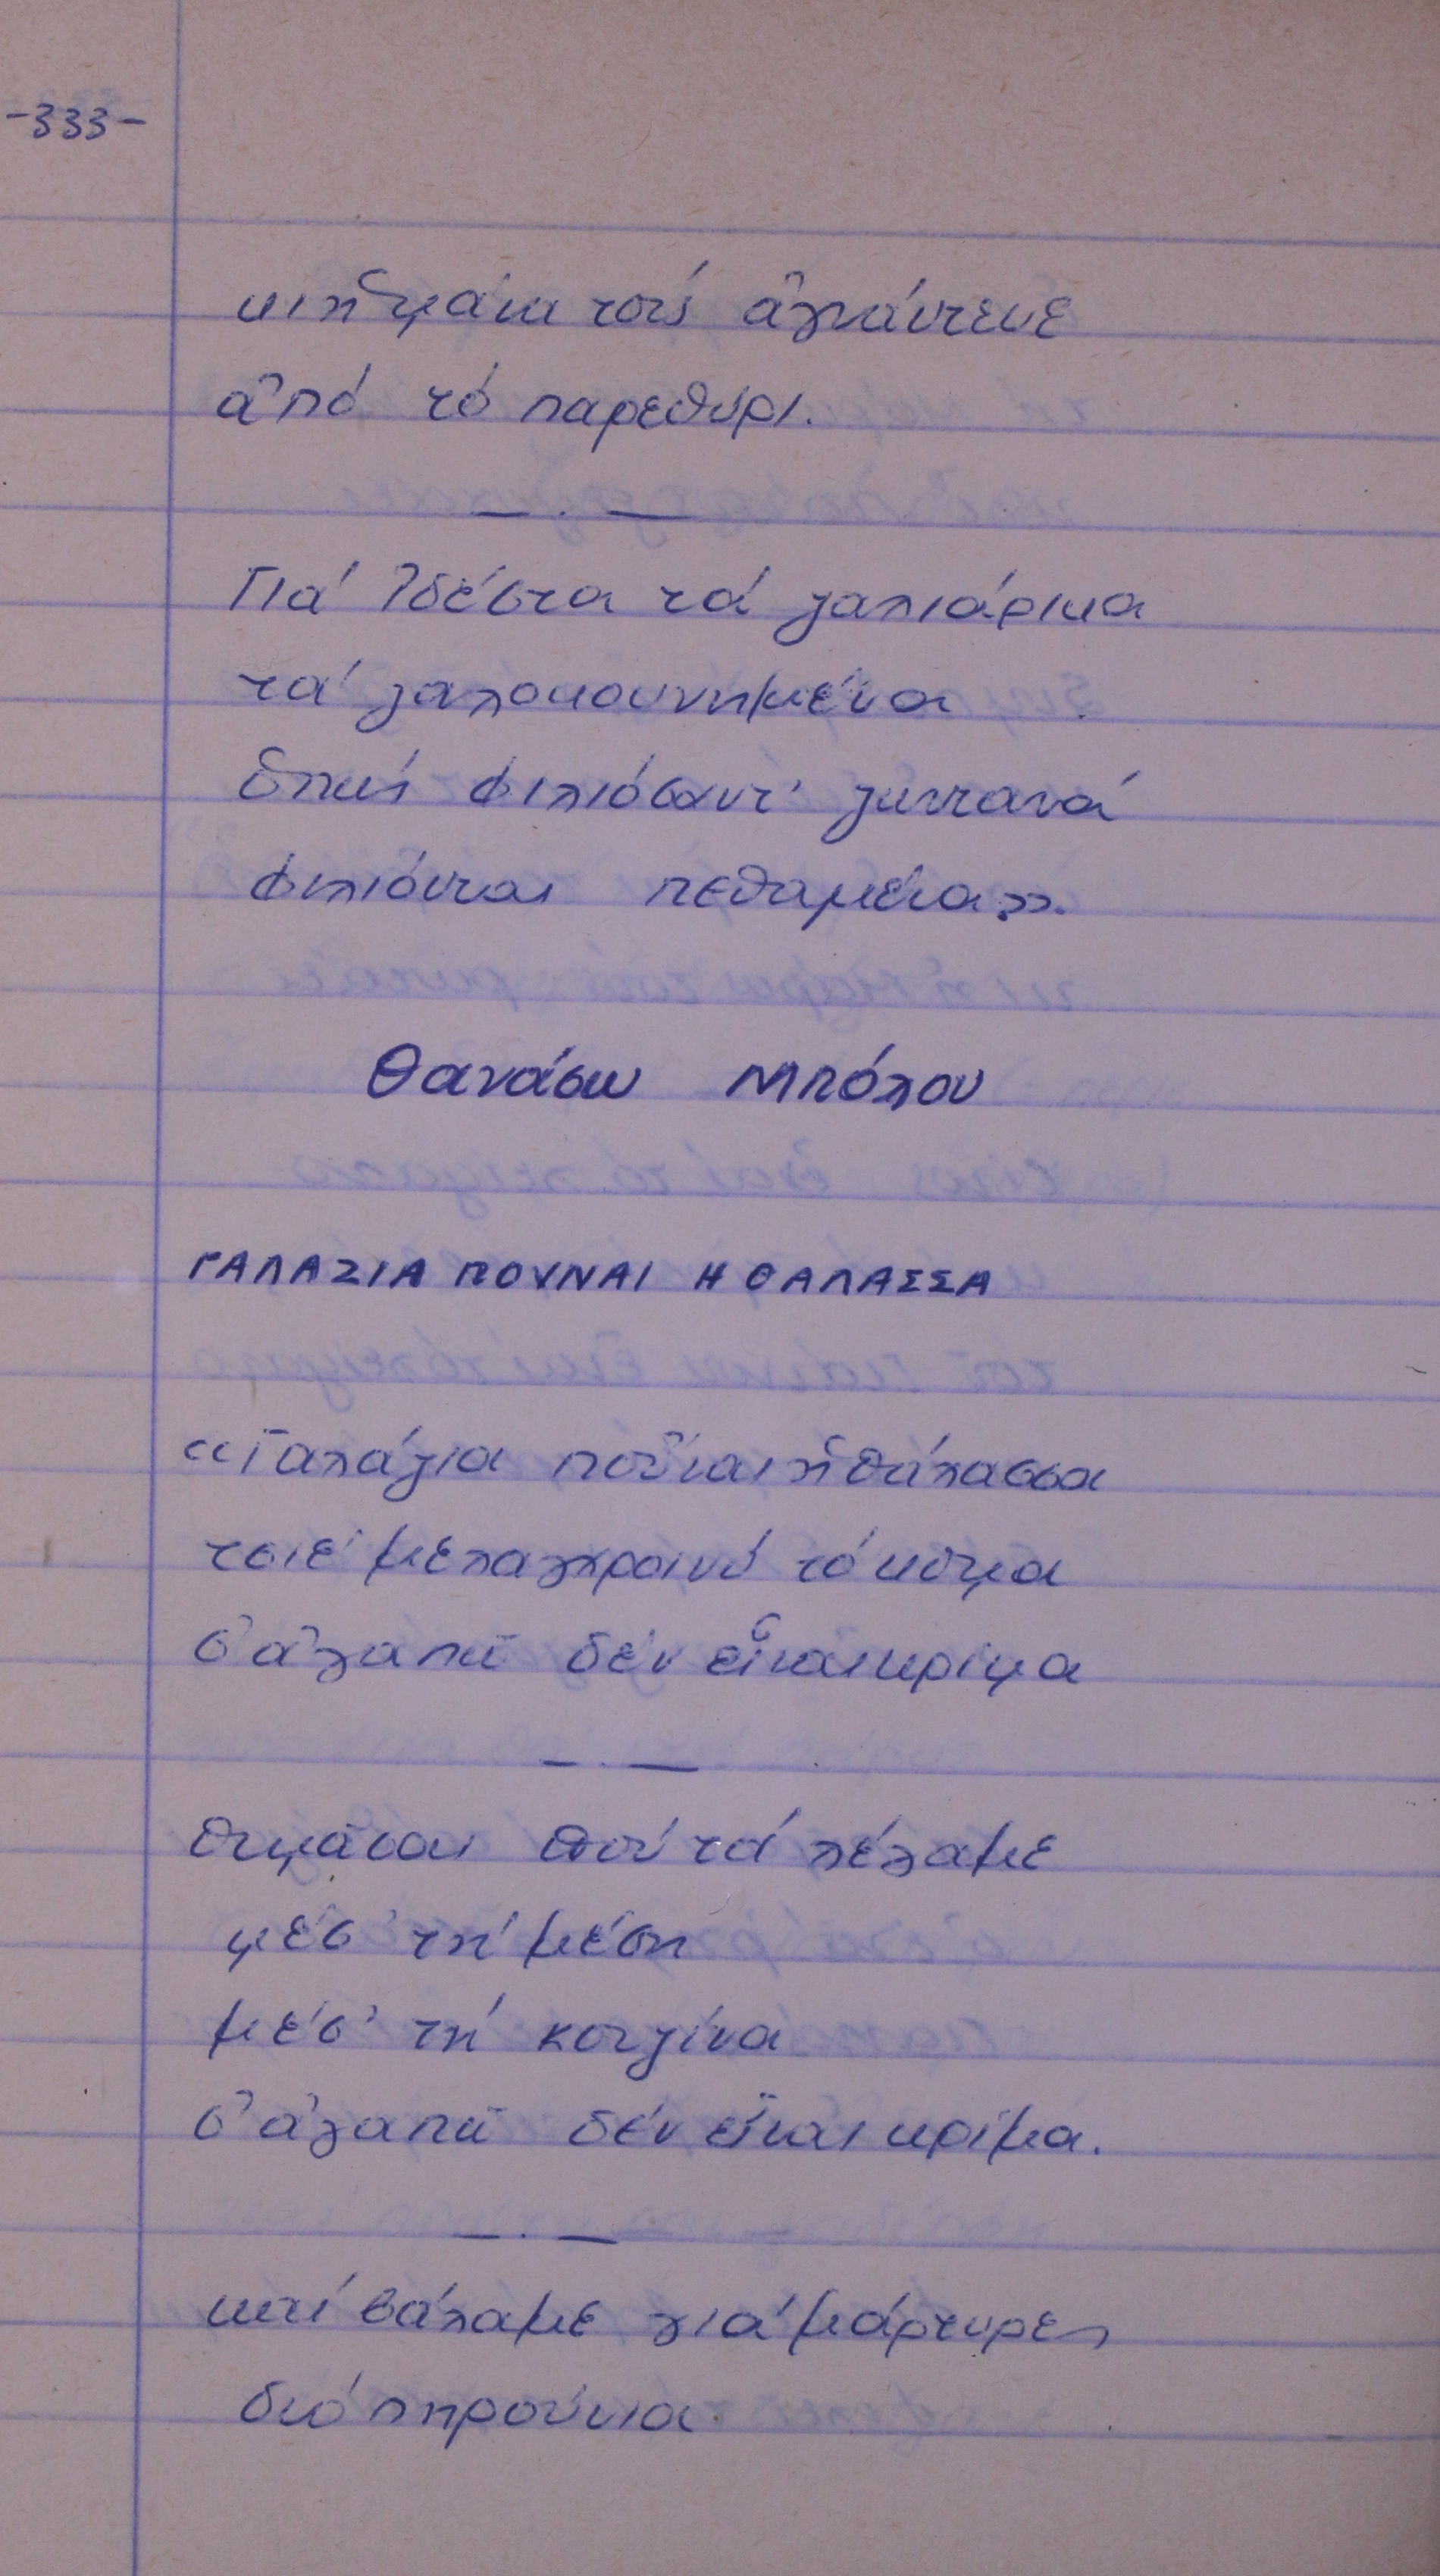 -333-
κι ἡ μάνα τοὺς ἀγνάντευε
ἀπό τό παρεθύρι.
— . —
Γιά ἰδέστα τά ζαλιάρικα
τά ζαλοκουνημένα
ὅπως φιλιόσαντ' ζωντανά
φιλιόνται πεθαμένα».
Θανάσω Μπόλου
ΓΑΛΑΖΙΑ ΠΟΥΝΑΙ Η ΘΑΛΑΣΣΑ
«Γαλάζια ποὖναι ἡ θάλασσα
τσιέ μελαχροινό τό κῦμα
σ' ἀγαπῶ δέν εἶναι κρίμα
— . —
Θυμᾶσαι πού τά λέγαμε
μέσ' τή μέση
μέσ' τή κουζίνα
σ' ἀγαπῶ δέν εἶναι κρίμα.
— . —
καί βάλαμε γιά μάρτυρες
διό πηρούνια